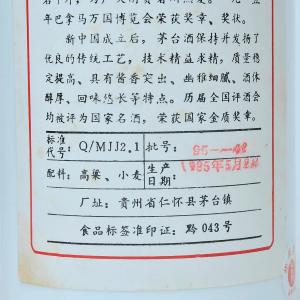 年巴拿马万国博览会荣获奖章、奖状。
新中国成立后，茅台酒保持并发扬了
优良的传统工艺，技术精益求精，质量稳
定提高、具有酱香突出、幽雅细腻、酒体
醇厚、回味悠长等特点。历届全国评酒会
均被评为国家名酒，荣获国家金质奖章。
标准代号： Q/MJJ2.1 批号：
配料： 高粱、小麦 生产日期： 1995年5月
厂址：贵州省仁怀县茅台镇
食品标签准印证：黔043号